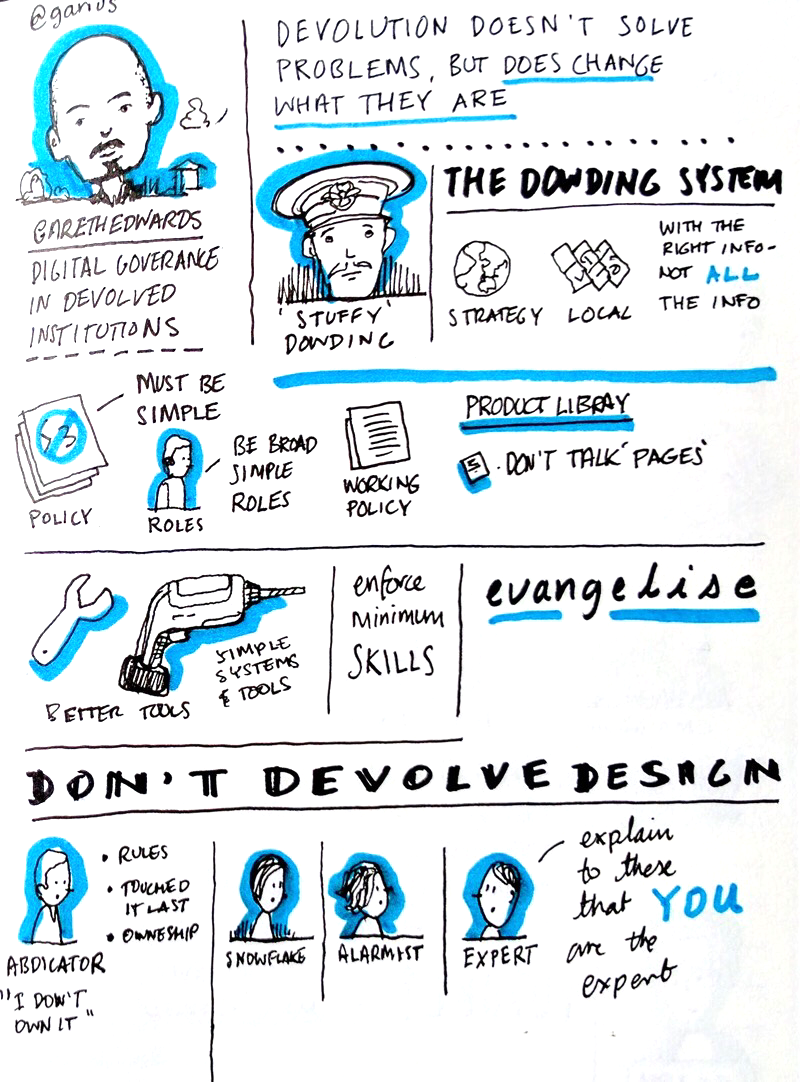 @garius
GARETH EDWARDS
DIGITAL GOVERANCE
IN DEVOLVED
INSTITUTIONS
DEVOLUTION DOESN'T SOLVE
PROBLEMS, BUT DOES CHANGE
WHAT THEY ARE
'STUFFY'
DOWDING
THE DOWDING SYSTEM
STRATEGY
LOCAL
WITH THE
RIGHT INFO-
NOT ALL
THE INFO
POLICY
MUST BE
SIMPLE
ROLES
BE BROAD
SIMPLE
ROLES
WORKING
POLICY
PRODUCT LIBRAY
· DON'T TALK 'PAGES'
BETTER TOOLS
SIMPLE
SYSTEMS
& TOOLS
enforce
minimum
SKILLS
evangelise
DON'T DEVOLVE DESIGN
ABDICATOR
"I DON'T
OWN IT"
• RULES
• TOUCHED
IT LAST
• OWNESHIP
SNOWFLAKE
ALARMIST
EXPERT
explain
to these
that YOU
are the
expert